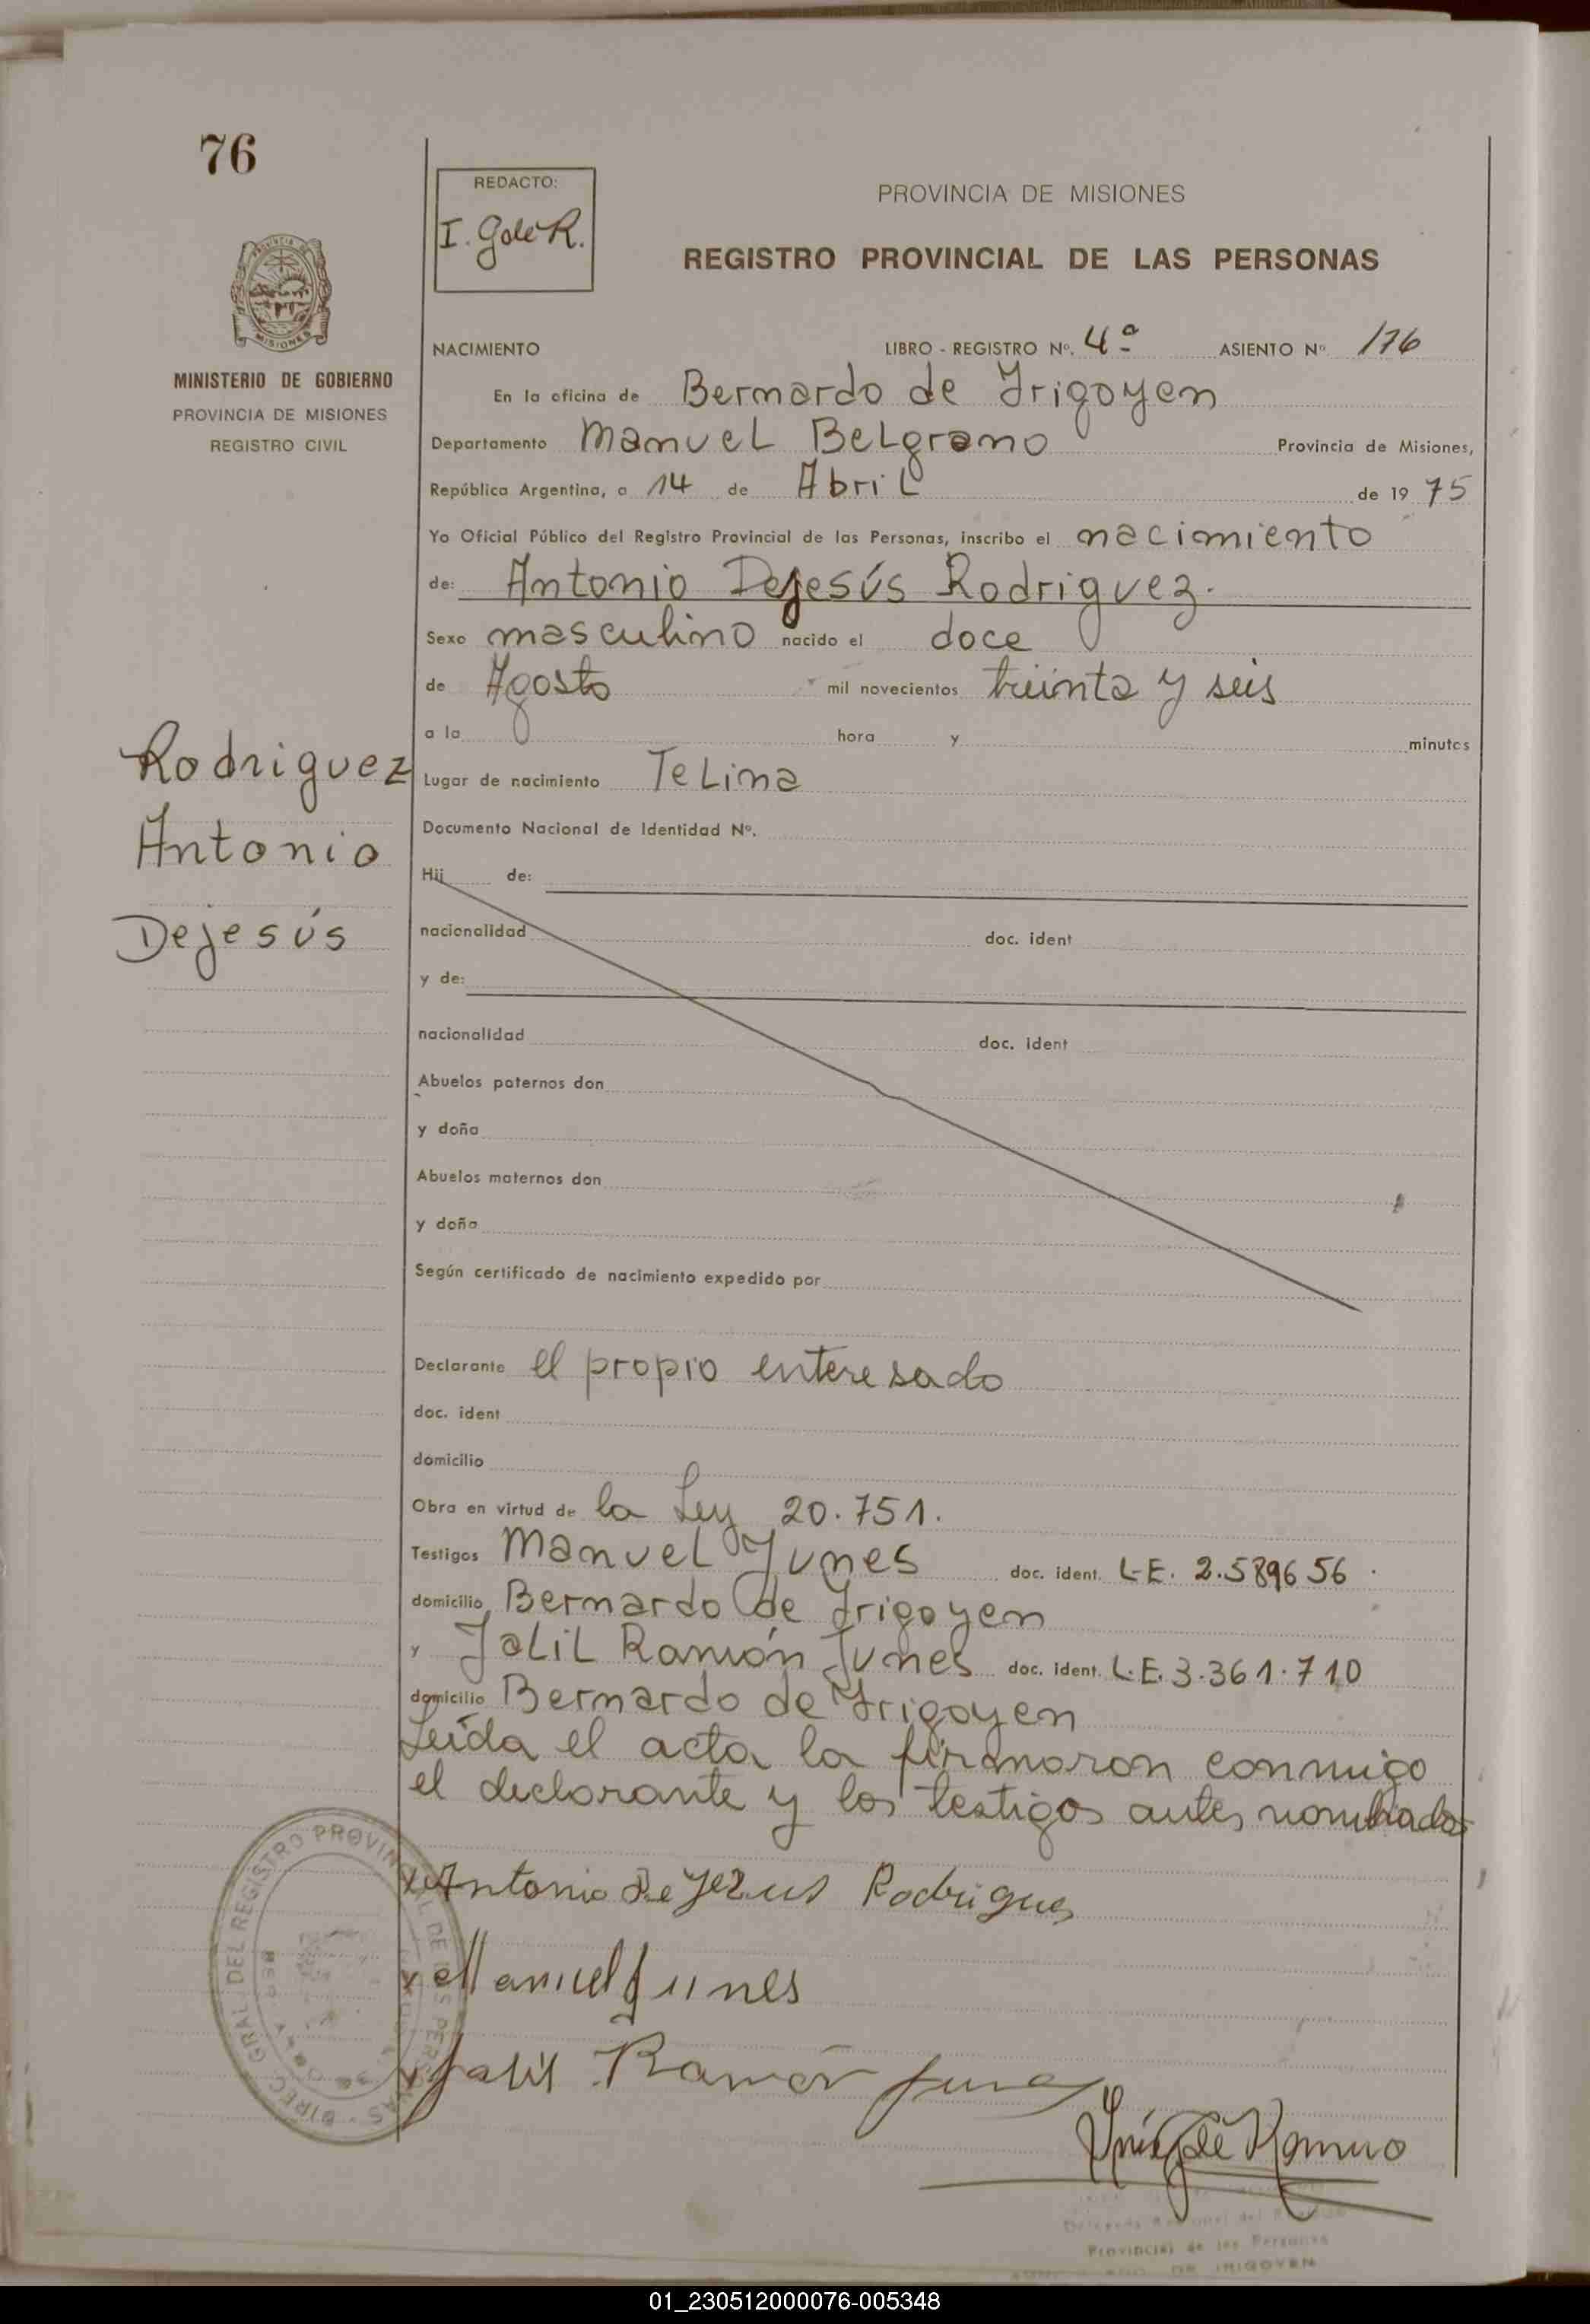 76
REDACTO:
I. G de R.
PROVINCIA DE MISIONES
REGISTRO PROVINCIAL DE LAS PERSONAS
MISIONES
MINISTERIO DE GOBIERNO
PROVINCIA DE MISIONES
REGISTRO CIVIL
NACIMIENTO LIBRO - REGISTRO Nº. 4º ASIENTO Nº 176
En la oficina de Bernardo de Irigoyen
Departamento Manuel Belgrano Provincia de Misiones,
República Argentina, a 14 de Abril de 1975
Yo Oficial Público del Registro Provincial de las Personas, inscribo el nacimiento
de: Antonio Dejesús Rodriguez.
Sexo masculino nacido el doce
de Agosto mil novecientos treinta y seis
a la hora y minutos
Lugar de nacimiento Telina
Rodriguez
Antonio
Dejesús
Documento Nacional de Identidad Nº.
Hij de:
nacionalidad doc. ident
y de:
nacionalidad doc. ident
Abuelos paternos don
y doña
Abuelos maternos don
y doña
Según certificado de nacimiento expedido por
Declarante el propio enteresado
doc. ident
domicilio
Obra en virtud de la Ley 20.751.
Testigos Manuel Yunes doc. ident. L.E. 2.589656.
domicilio Bernardo de Irigoyen
y Jalil Ramón Junes doc. ident. L.E. 3.361.710
domicilio Bernardo de Irigoyen
Leída el acta la firmaron conmigo
el declarante y los testigos antes nombrados
x Antonio De Jezus Rodrigues
x Manuel Junes
x Jalil Ramón Junes
Inés G de Romero
DIREC. GRAL. DEL REGISTRO PROVINCIAL DE LAS PERSONAS
Provincial de las Personas
DE IRIGOYEN
01_230512000076-005348